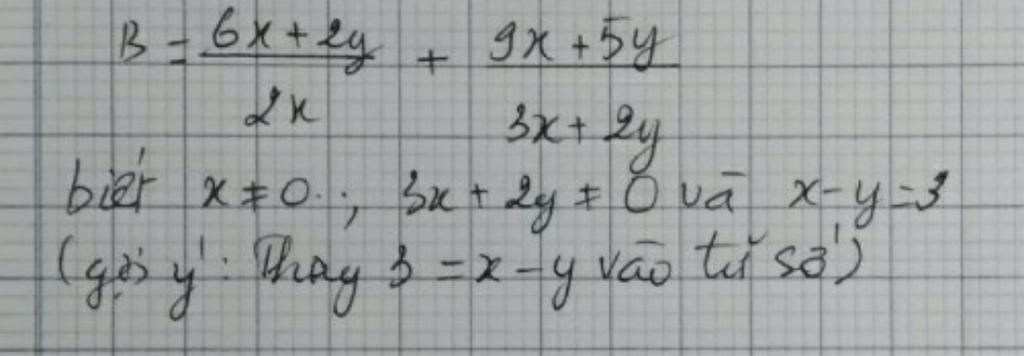 B = \frac{6x+2y}{2x} + \frac{9x+5y}{3x+2y}
biết x ≠ 0 ; 3x + 2y ≠ 0 và x - y = 3
(gợi ý: Thay 3 = x - y vào tử số)